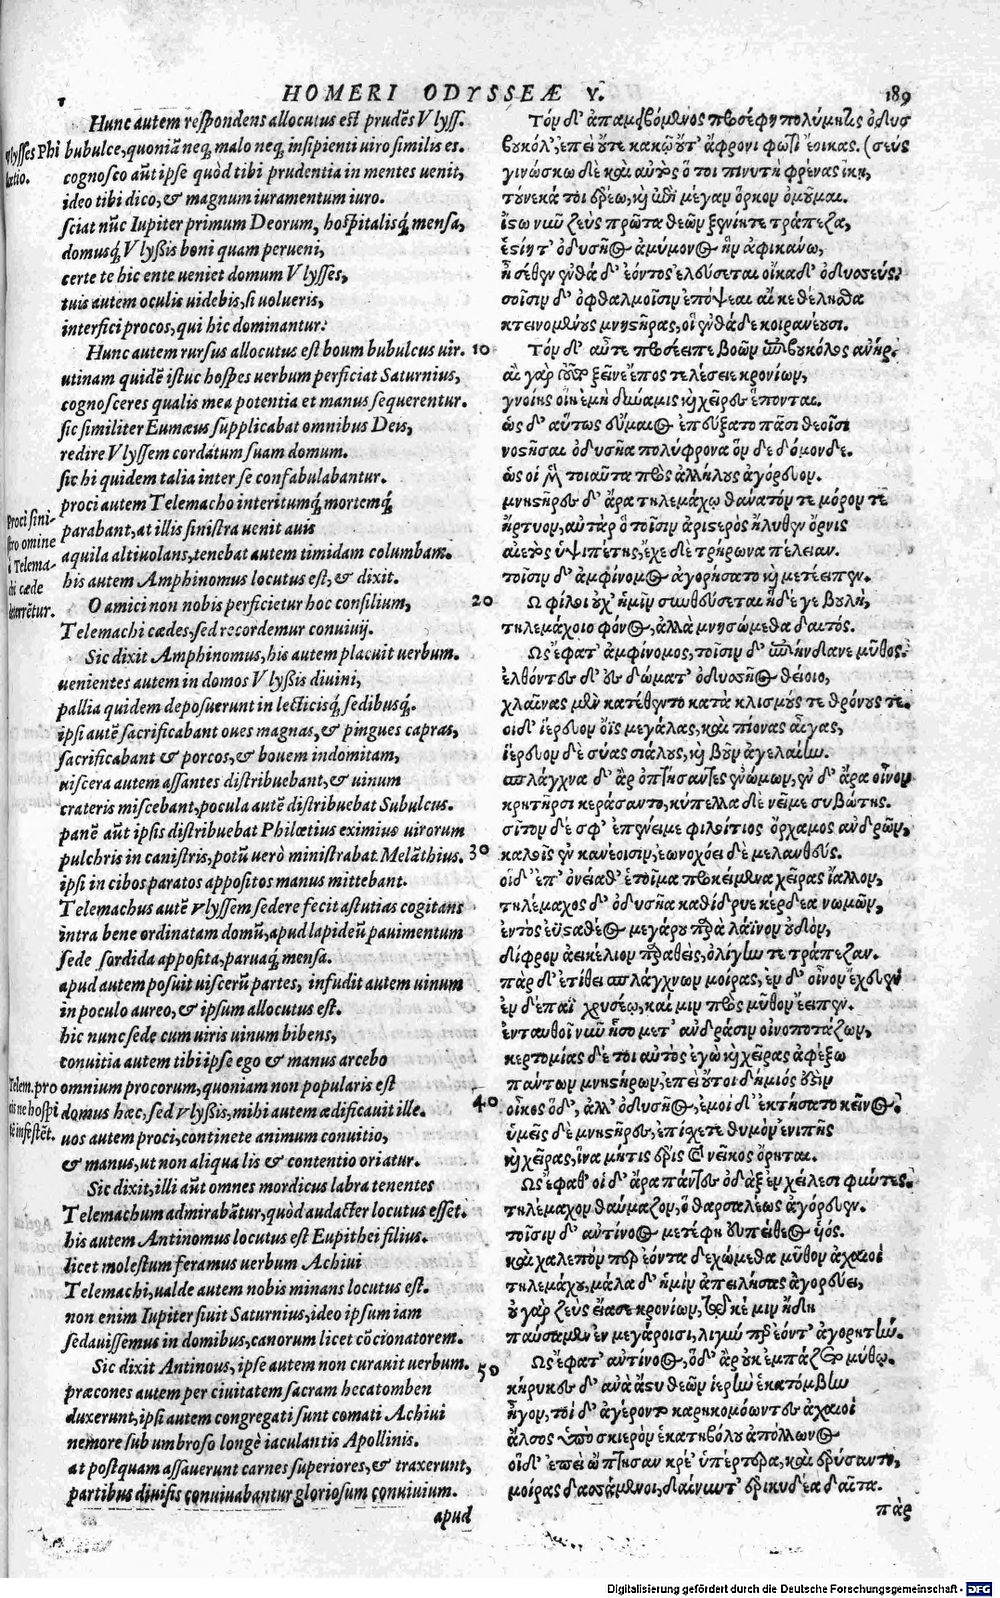 HOMERI ODYSSEÆ Υ. 189
Hunc autem respondens allocutus est prudẽs Vlyss.
bubulce, quoniã neq; malo neq; insipienti uiro similis es.
cognosco aũt ipse quòd tibi prudentia in mentes uenit,
ideo tibi dico, & magnum iuramentum iuro.
sciat nũc Iupiter primum Deorum, hospitalisq́; mensa,
domusq́; Vlyßis boni quam perueni,
certe te hic ente ueniet domum Vlysses,
tuis autem oculis uidebis, si uolueris,
interfici procos, qui hic dominantur.
Hunc autem rursus allocutus est boum bubulcus uir.
utinam quidẽ istuc hospes uerbum perficiat Saturnius,
cognosceres qualis mea potentia et manus sequerentur.
sic similiter Eumæus supplicabat omnibus Deis,
redire Vlyssem cordatum suam domum.
sic hi quidem talia inter se confabulabantur.
proci autem Telemacho interitumq́; mortemq́;
parabant, at illis sinistra uenit auis
aquila altiuolans, tenebat autem timidam columbam.
his autem Amphinomus locutus est, & dixit.
O amici non nobis perficietur hoc consilium,
Telemachi cædes, sed recordemur conuiuij.
Sic dixit Amphinomus, his autem placuit uerbum.
uenientes autem in domos Vlyßis diuini,
pallia quidem deposuerunt in lecticisq́; sedibusq́;.
ipsi autẽ sacrificabant oues magnas, & pingues capras,
sacrificabant & porcos, & bouem indomitam,
uiscera autem assantes distribuebant, & uinum
crateris miscebant, pocula autẽ distribuebat Subulcus.
panẽ aũt ipsis distribuebat Philœtius eximius uirorum
pulchris in canistris, potũ uerò ministrabat Melãthius.
ipsi in cibos paratos appositos manus mittebant.
Telemachus autẽ vlyssem sedere fecit astutias cogitans
intra bene ordinatam domũ, apud lapideũ pauimentum
sede sordida apposita, paruaq́; mensa.
apud autem posuit uiscerũ partes, infudit autem uinum
in poculo aureo, & ipsum allocutus est.
hic nunc sede cum uiris uinum bibens,
conuitia autem tibi ipse ego & manus arcebo
omnium procorum, quoniam non popularis est
domus hæc, sed vlyßis, mihi autem ædificauit ille.
uos autem proci, continete animum conuitio,
& manus, ut non aliqua lis & contentio oriatur.
Sic dixit, illi aũt omnes mordicus labra tenentes
Telemachum admirabãtur, quòd audacter locutus esset.
his autem Antinomus locutus est Eupithei filius.
licet molestum feramus uerbum Achiui
Telemachi, ualde autem nobis minans locutus est.
non enim Iupiter siuit Saturnius, ideo ipsum iam
sedauissemus in domibus, canorum licet cõcionatorem.
Sic dixit Antinous, ipse autem non curauit uerbum.
præcones autem per ciuitatem sacram hecatomben
duxerunt, ipsi autem congregati sunt comati Achiui
nemore sub umbroso longè iaculantis Apollinis.
at postquam assauerunt carnes superiores, & traxerunt,
partibus diuisis conuiuabantur gloriosum conuiuium.
apud
vlysses Phi
lœtio.
Proci sini-
stro omine
à Telema-
chi cæde
Telem. pro
cis ne hospi
tẽ infestẽt.
10
20
30
40
50
Τὸν δ' ἀπαμειβόμενος προσέφη πολύμητις ὀδυσ
βουκόλ', ἐπεὶ οὔτε κακῷ οὔτ' ἄφρονι φωτὶ ἔοικας. (σεύς
γινώσκω δὲ καὶ αὐτὸς ὅ τοι πινυτὴ φρένας ἵκει,
τούνεκά τοι ἐρέω, καὶ ἐπὶ μέγαν ὅρκον ὀμοῦμαι.
ἴστω νῦν ζεὺς πρῶτα θεῶν ξενίητε τράπεζα,
ἑστίη τ' ὀδυσῆος ἀμύμονος ἣν ἀφικάνω,
ἦ σέθεν ἐνθάδ' ἐόντος ἐλεύσεται οἴκαδ' ὀδυσσεύς.
σοῖσιν δ' ὀφθαλμοῖσιν ἐπόψεαι αἴ κε θέλησθα
κτεινομένους μνηστῆρας, οἳ ἐνθάδε κοιρανέουσι.
Τὸν δ' αὖτε προσέειπε βοῶν ἐπιβουκόλος ἀνήρ.
αἲ γὰρ τοῦτο ξεῖνε ἔπος τελέσειε κρονίων,
γνοίης οἵη ἐμὴ δύναμις καὶ χεῖρες ἕπονται.
ὣς δ' αὕτως εὔμαιος ἐπεύξατο πᾶσι θεοῖσι
νοστῆσαι ὀδυσῆα πολύφρονα ὅν δε δόμονδε.
ὣς οἱ μὲν τοιαῦτα πρὸς ἀλλήλους ἀγόρευον.
μνηστῆρες δ' ἄρα τηλεμάχῳ θάνατόν τε μόρον τε
ἤρτυον, αὐτὰρ ὁ τοῖσιν ἀριστερὸς ἤλυθεν ὄρνις
αἰετὸς ὑψιπετης, ἔχε δὲ τρήρωνα πέλειαν.
τοῖσιν δ' ἀμφίνομος ἀγορήσατο καὶ μετέειπεν.
Ὦ φίλοι οὐχ' ἡμῖν συνθεύσεται ἥδε γε βουλή,
τηλεμάχοιο φόνος, ἀλλὰ μνησώμεθα δαιτός.
Ὣς ἔφατ' ἀμφίνομος, τοῖσιν δ' ἐπιήνδανε μῦθος.
ἐλθόντες δ' ἐς δώματ' ὀδυσσῆος θείοιο,
χλαίνας μὲν κατέθεντο κατὰ κλισμούς τε θρόνους τε.
οἱ δ' ἱέρευον ὄϊς μεγάλας, καὶ πίονας αἶγας,
ἱέρευον δὲ σύας σιάλους, καὶ βοῦν ἀγελαίην.
σπλάγχνα δ' ἂρ ὀπτήσαντες ἐνώμων, ἐν δ' ἄρα οἶνον
κρητῆρσι κεράσαντο, κύπελλα δὲ νεῖμε συβώτης.
σῖτον δὲ σφ' ἐπένειμε φιλοίτιος ὄρχαμος ἀνδρῶν,
καλοῖς ἐν κανέοισιν, ἐωνοχόει δὲ μελανθεύς.
οἱ δ' ἐπ' ὀνείαθ' ἑτοῖμα προκείμενα χεῖρας ἴαλλον,
τηλέμαχος δ' ὀδυσῆα καθίδρυε κέρδεα νωμῶν,
ἐντὸς ἐϋσταθέος μεγάρου παρὰ λάϊνον οὐδόν,
δίφρον ἀεικέλιον παραθεὶς, ὀλίγην τε τράπεζαν.
πὰρ δ' ἐτίθει σπλάγχνων μοίρας, ἐν δ' οἶνον ἔχευεν
ἐν δέπαϊ χρυσέῳ, καί μιν πρὸς μῦθον ἔειπεν.
ἐνταυθοῖ νῦν ἧσο μετ' ἀνδράσιν οἰνοποτάζων,
κερτομίας δέ τοι αὐτὸς ἐγὼ καὶ χεῖρας ἀφέξω
πάντων μνηστήρων, ἐπεὶ οὔτοι δήμιός ἐστιν
οἶκος ὅδ', ἀλλ' ὀδυσῆος, ἐμοὶ δ' ἐκτήσατο κεῖνος.
ὑμεῖς δὲ μνηστῆρες, ἐπίσχετε θυμὸν ἐνιπῆς
καὶ χεῖρας, ἵνα μήτις ἔρις καὶ νεῖκος ὄρηται.
Ὣς ἔφαθ' οἱ δ' ἄρα πάντες ὀδὰξ ἐν χείλεσι φύντες.
τηλέμαχον θαύμαζον, ὃ θαρσαλέως ἀγόρευεν.
τοῖσιν δ' αὐτίνοος μετέφη εὐπείθεος υἱός.
καὶ χαλεπόν περ ἐόντα δεχώμεθα μῦθον ἀχαιοὶ
τηλεμάχου, μάλα δ' ἡμῖν ἀπειλήσας ἀγορεύει,
οὐ γὰρ ζεὺς εἴασε κρονίων, τῷ κέ μιν ἤδη
παύσαμεν ἐν μεγάροισι, λιγύν περ ἐόντ' ἀγορητήν.
Ὣς ἔφατ' αὐτίνοος, ὁ δ' ἂρ οὐκ ἐμπάζετο μύθων.
κήρυκες δ' ἀνὰ ἄστυ θεῶν ἱερὴν ἑκατόμβην
ἦγον, τοὶ δ' ἀγέροντο καρηκομόωντες ἀχαιοὶ
ἄλσος ὑπὸ σκιερὸν ἑκατηβόλου ἀπόλλωνος
οἱ δ' ἐπεὶ ὤπτησαν κρέ' ὑπέρτερα, καὶ ἐρύσαντο,
μοίρας δασσάμενοι, δαίνυντ' ἐρικυδέα δαῖτα.
πὰρ
Digitalisierung gefördert durch die Deutsche Forschungsgemeinschaft - DFG